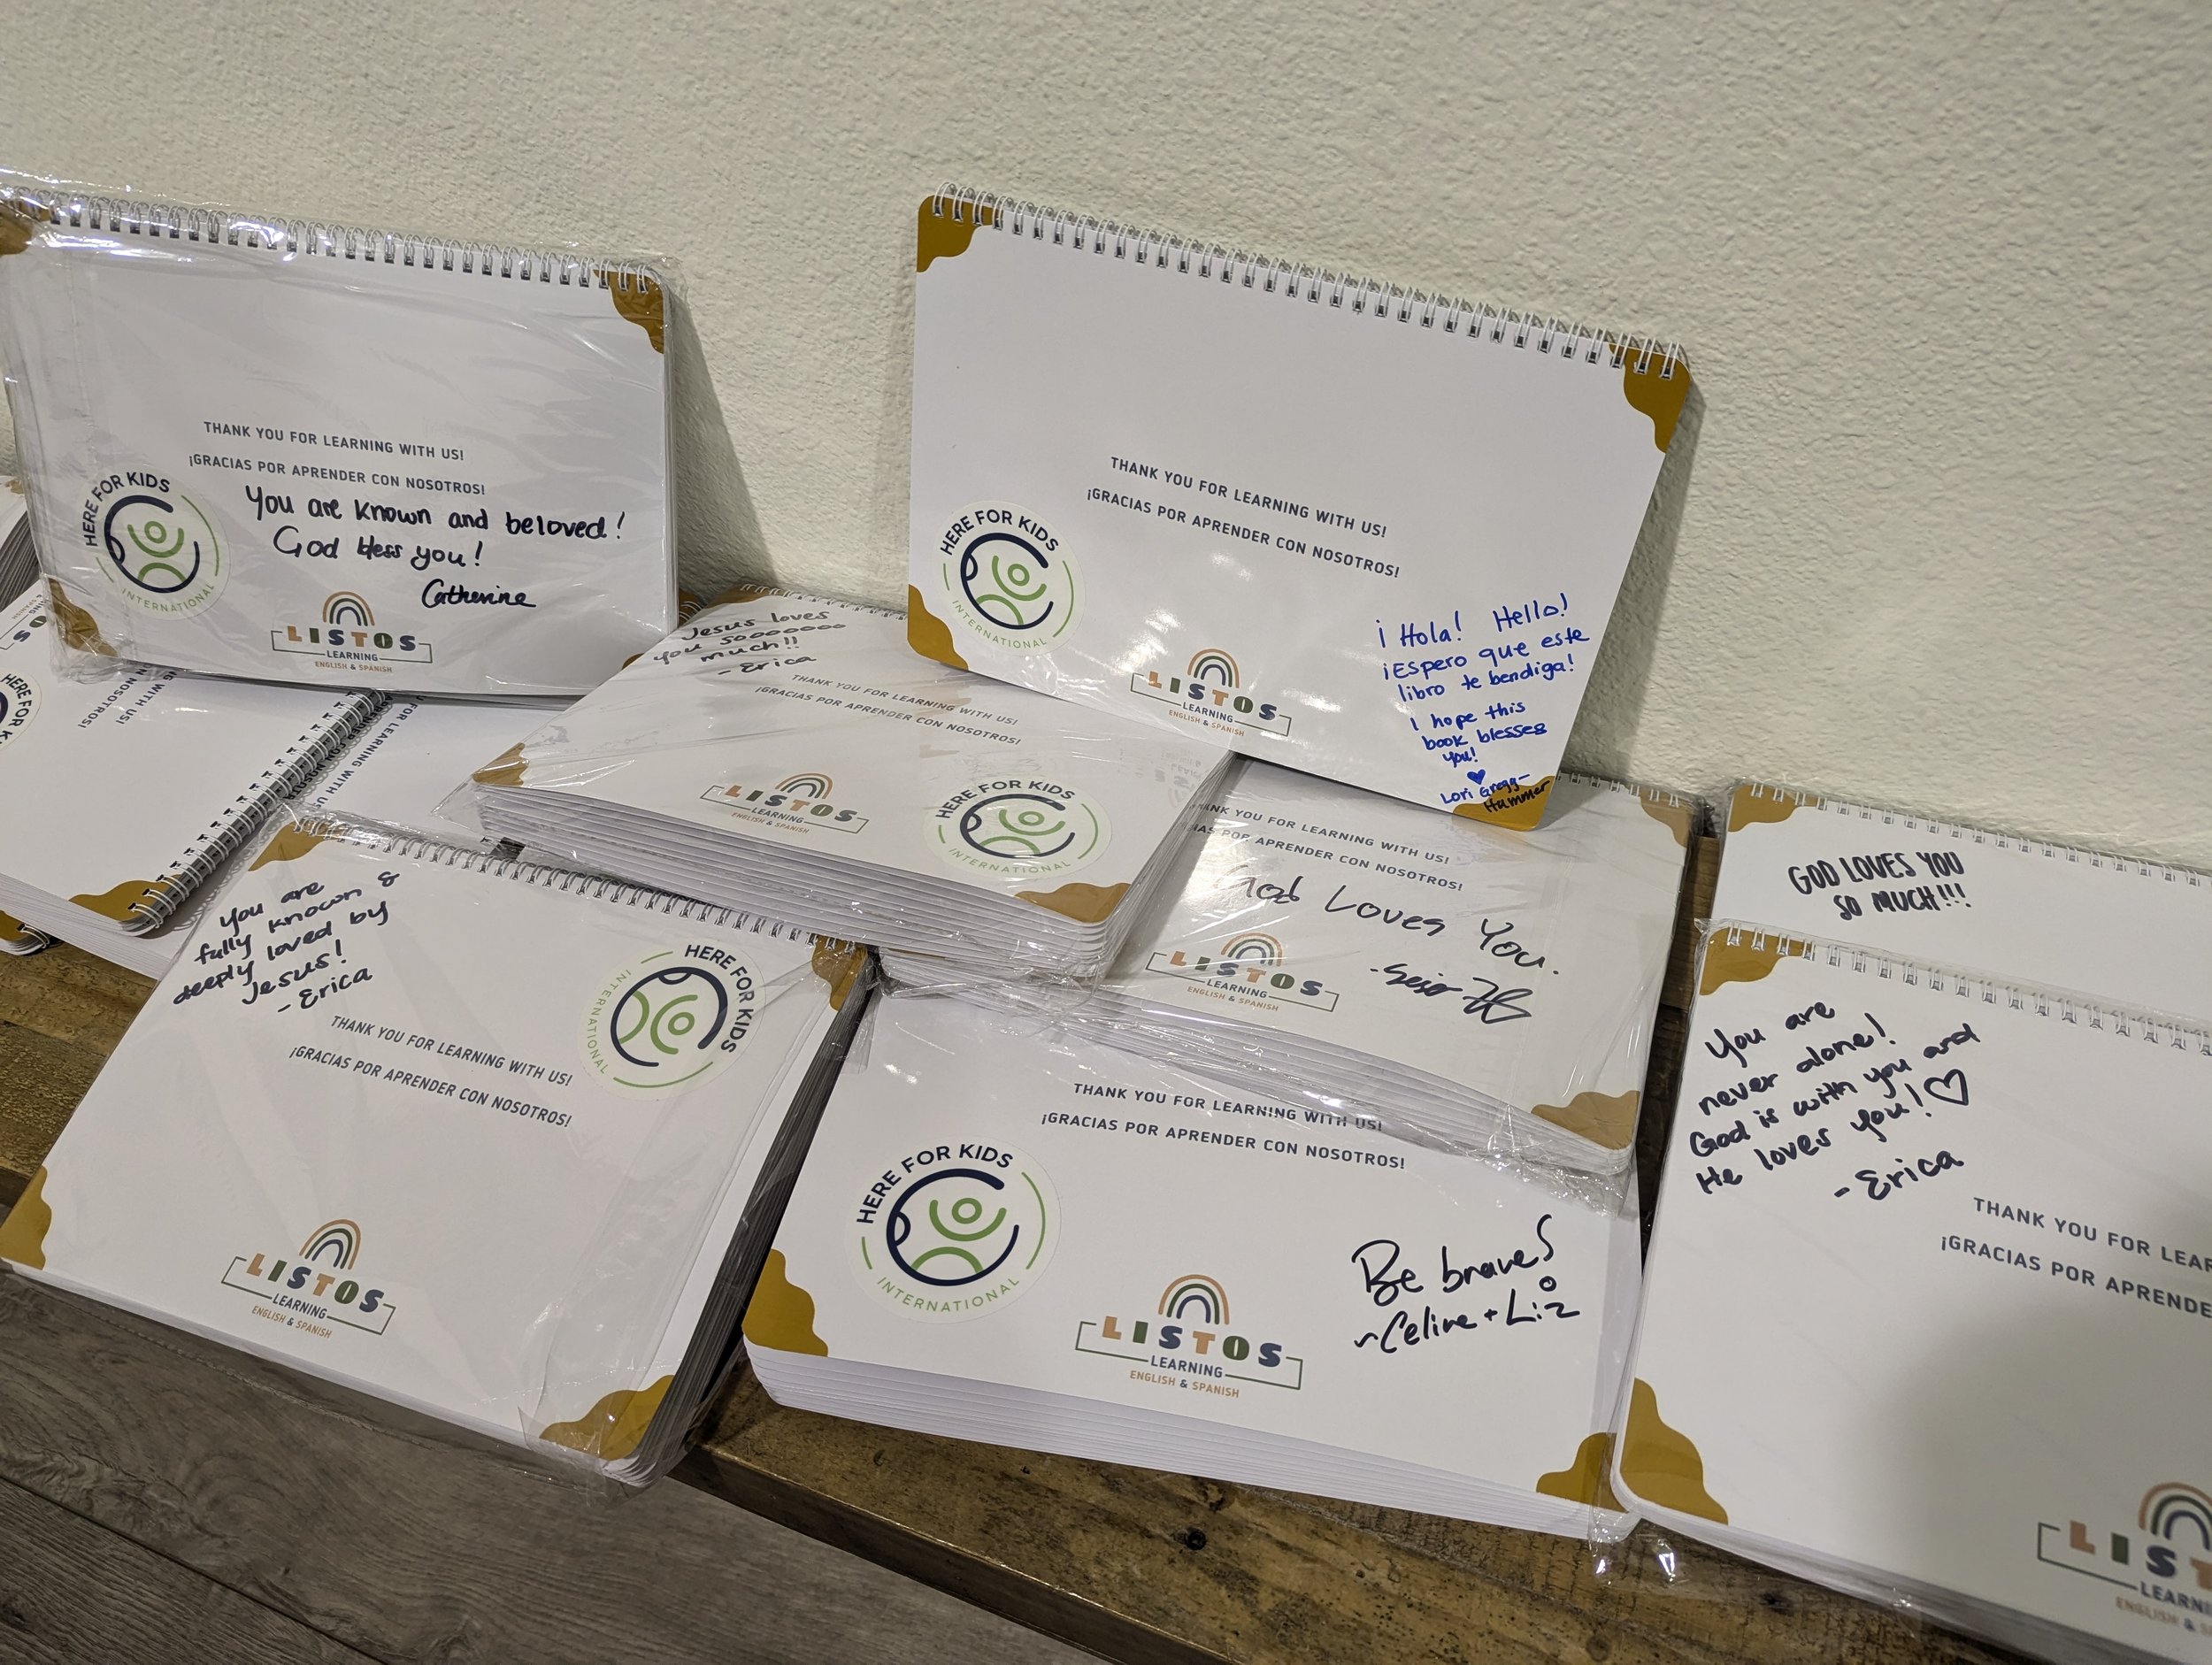 THANK YOU FOR LEARNING WITH US!
¡GRACIAS POR APRENDER CON NOSOTROS!
You are known and beloved!
God bless you!
Catherine
HERE FOR KIDS
INTERNATIONAL
LISTOS
LEARNING
ENGLISH & SPANISH
THANK YOU FOR LEARNING WITH US!
¡GRACIAS POR APRENDER CON NOSOTROS!
HERE FOR KIDS
INTERNATIONAL
LISTOS
LEARNING
ENGLISH & SPANISH
¡Hola! Hello!
¡Espero que este
libro te bendiga!
I hope this
book blesses
you!
Lori Gregg-
Hummer
Jesus loves
you soooooooo
much!!
- Erica
THANK YOU FOR LEARNING WITH US!
¡GRACIAS POR APRENDER CON NOSOTROS!
LISTOS
LEARNING
ENGLISH & SPANISH
HERE FOR KIDS
INTERNATIONAL
& SPANISH
HERE FOR
WITH US!
NOSOTROS!
FOR LEARNING WITH US!
THANK YOU FOR LEARNING WITH US!
APRENDER CON NOSOTROS!
God Loves You.
LISTOS
LEARNING
ENGLISH & SPANISH
GOD LOVES YOU
SO MUCH!!!
You are
fully known &
deeply loved by
Jesus!
- Erica
HERE FOR KIDS
INTERNATIONAL
THANK YOU FOR LEARNING WITH US!
¡GRACIAS POR APRENDER CON NOSOTROS!
LISTOS
LEARNING
ENGLISH & SPANISH
THANK YOU FOR LEARNING WITH US!
¡GRACIAS POR APRENDER CON NOSOTROS!
HERE FOR KIDS
INTERNATIONAL
LISTOS
LEARNING
ENGLISH & SPANISH
Be brave!
~Celine + Liz
You are
never alone!
God is with you and
He loves you!
- Erica
THANK YOU FOR LEAR
¡GRACIAS POR APRENDE
LIST
LEARNI
ENGLISH & S